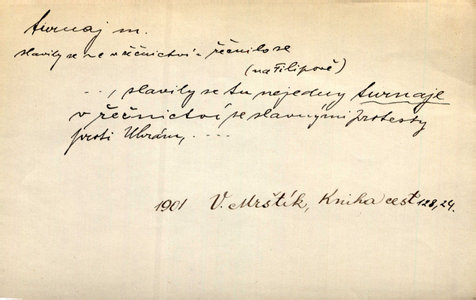 turnaj m.
slavily se ~e v řečnictví = řečnilo se
(na Filipově)
..., slavily se tu nejedny turnaje
v řečnictví se slavnými protesty
proti Uhrám, ....
1901 V. Mrštík, Kniha cest 128, 24.